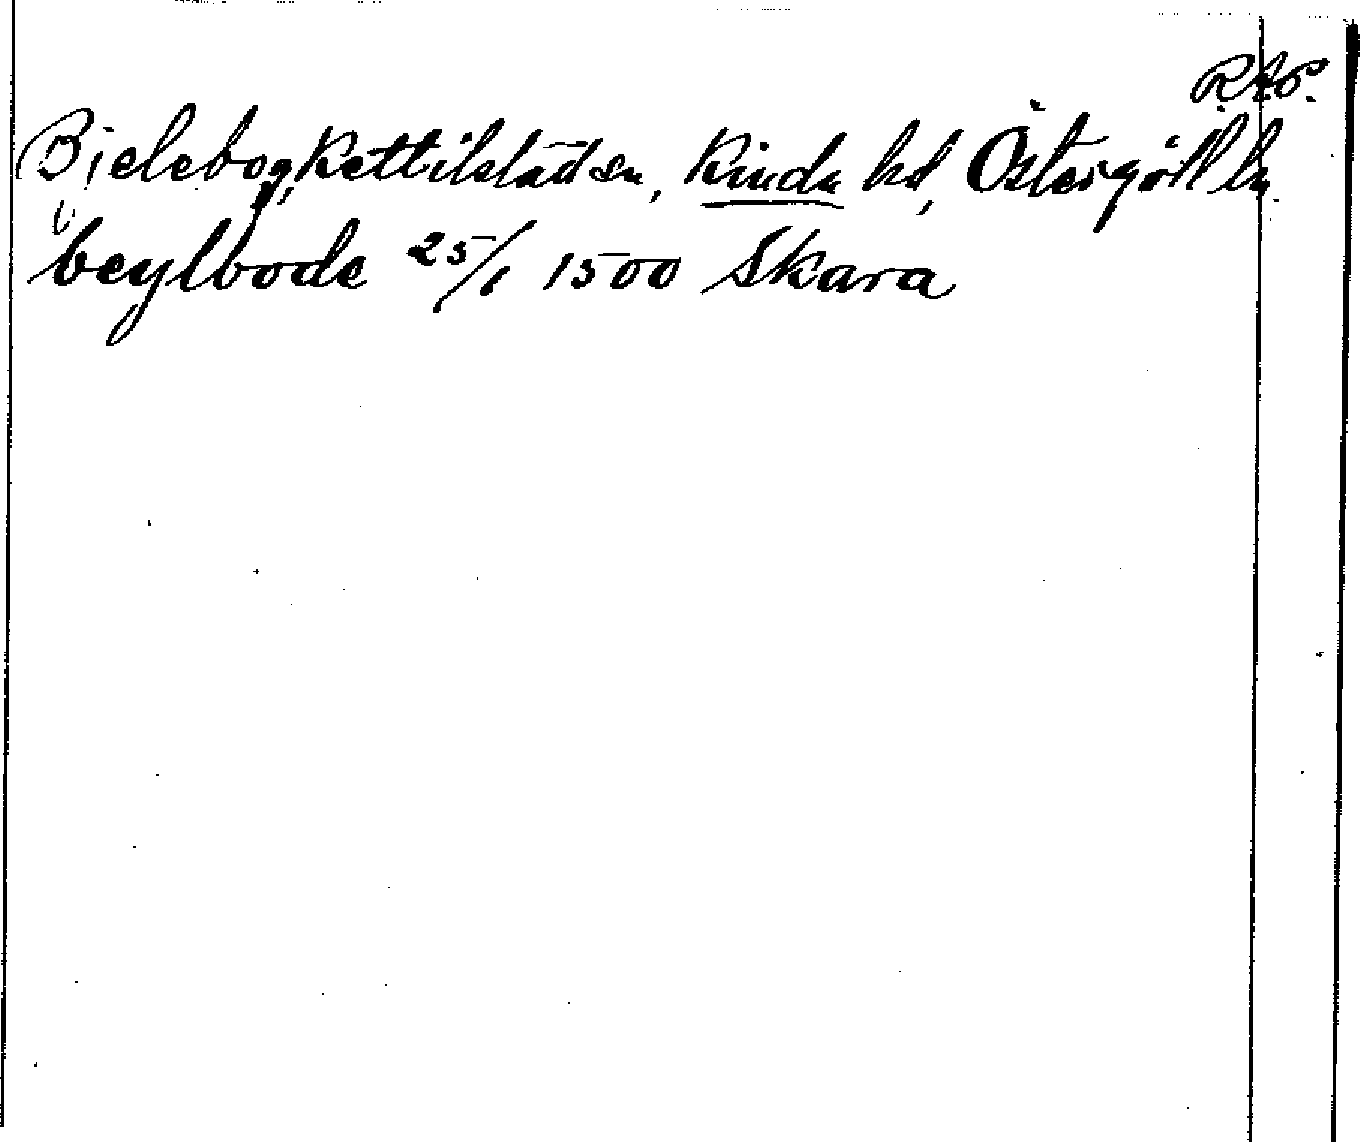 R.A.P.
Bjelebo, Kettilstad sn, Kinda hd, Östergötl ln
i beylbode 25/1 1500 Skara